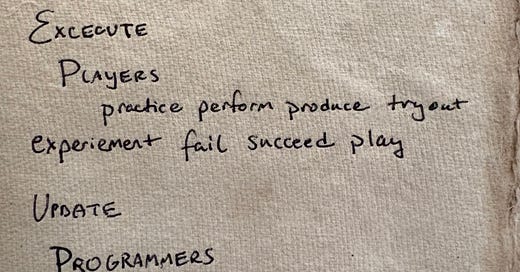 EXCECUTE
PLAYERS
practice perform produce tryout
experiement fail succeed play
UPDATE
PROGRAMMERS